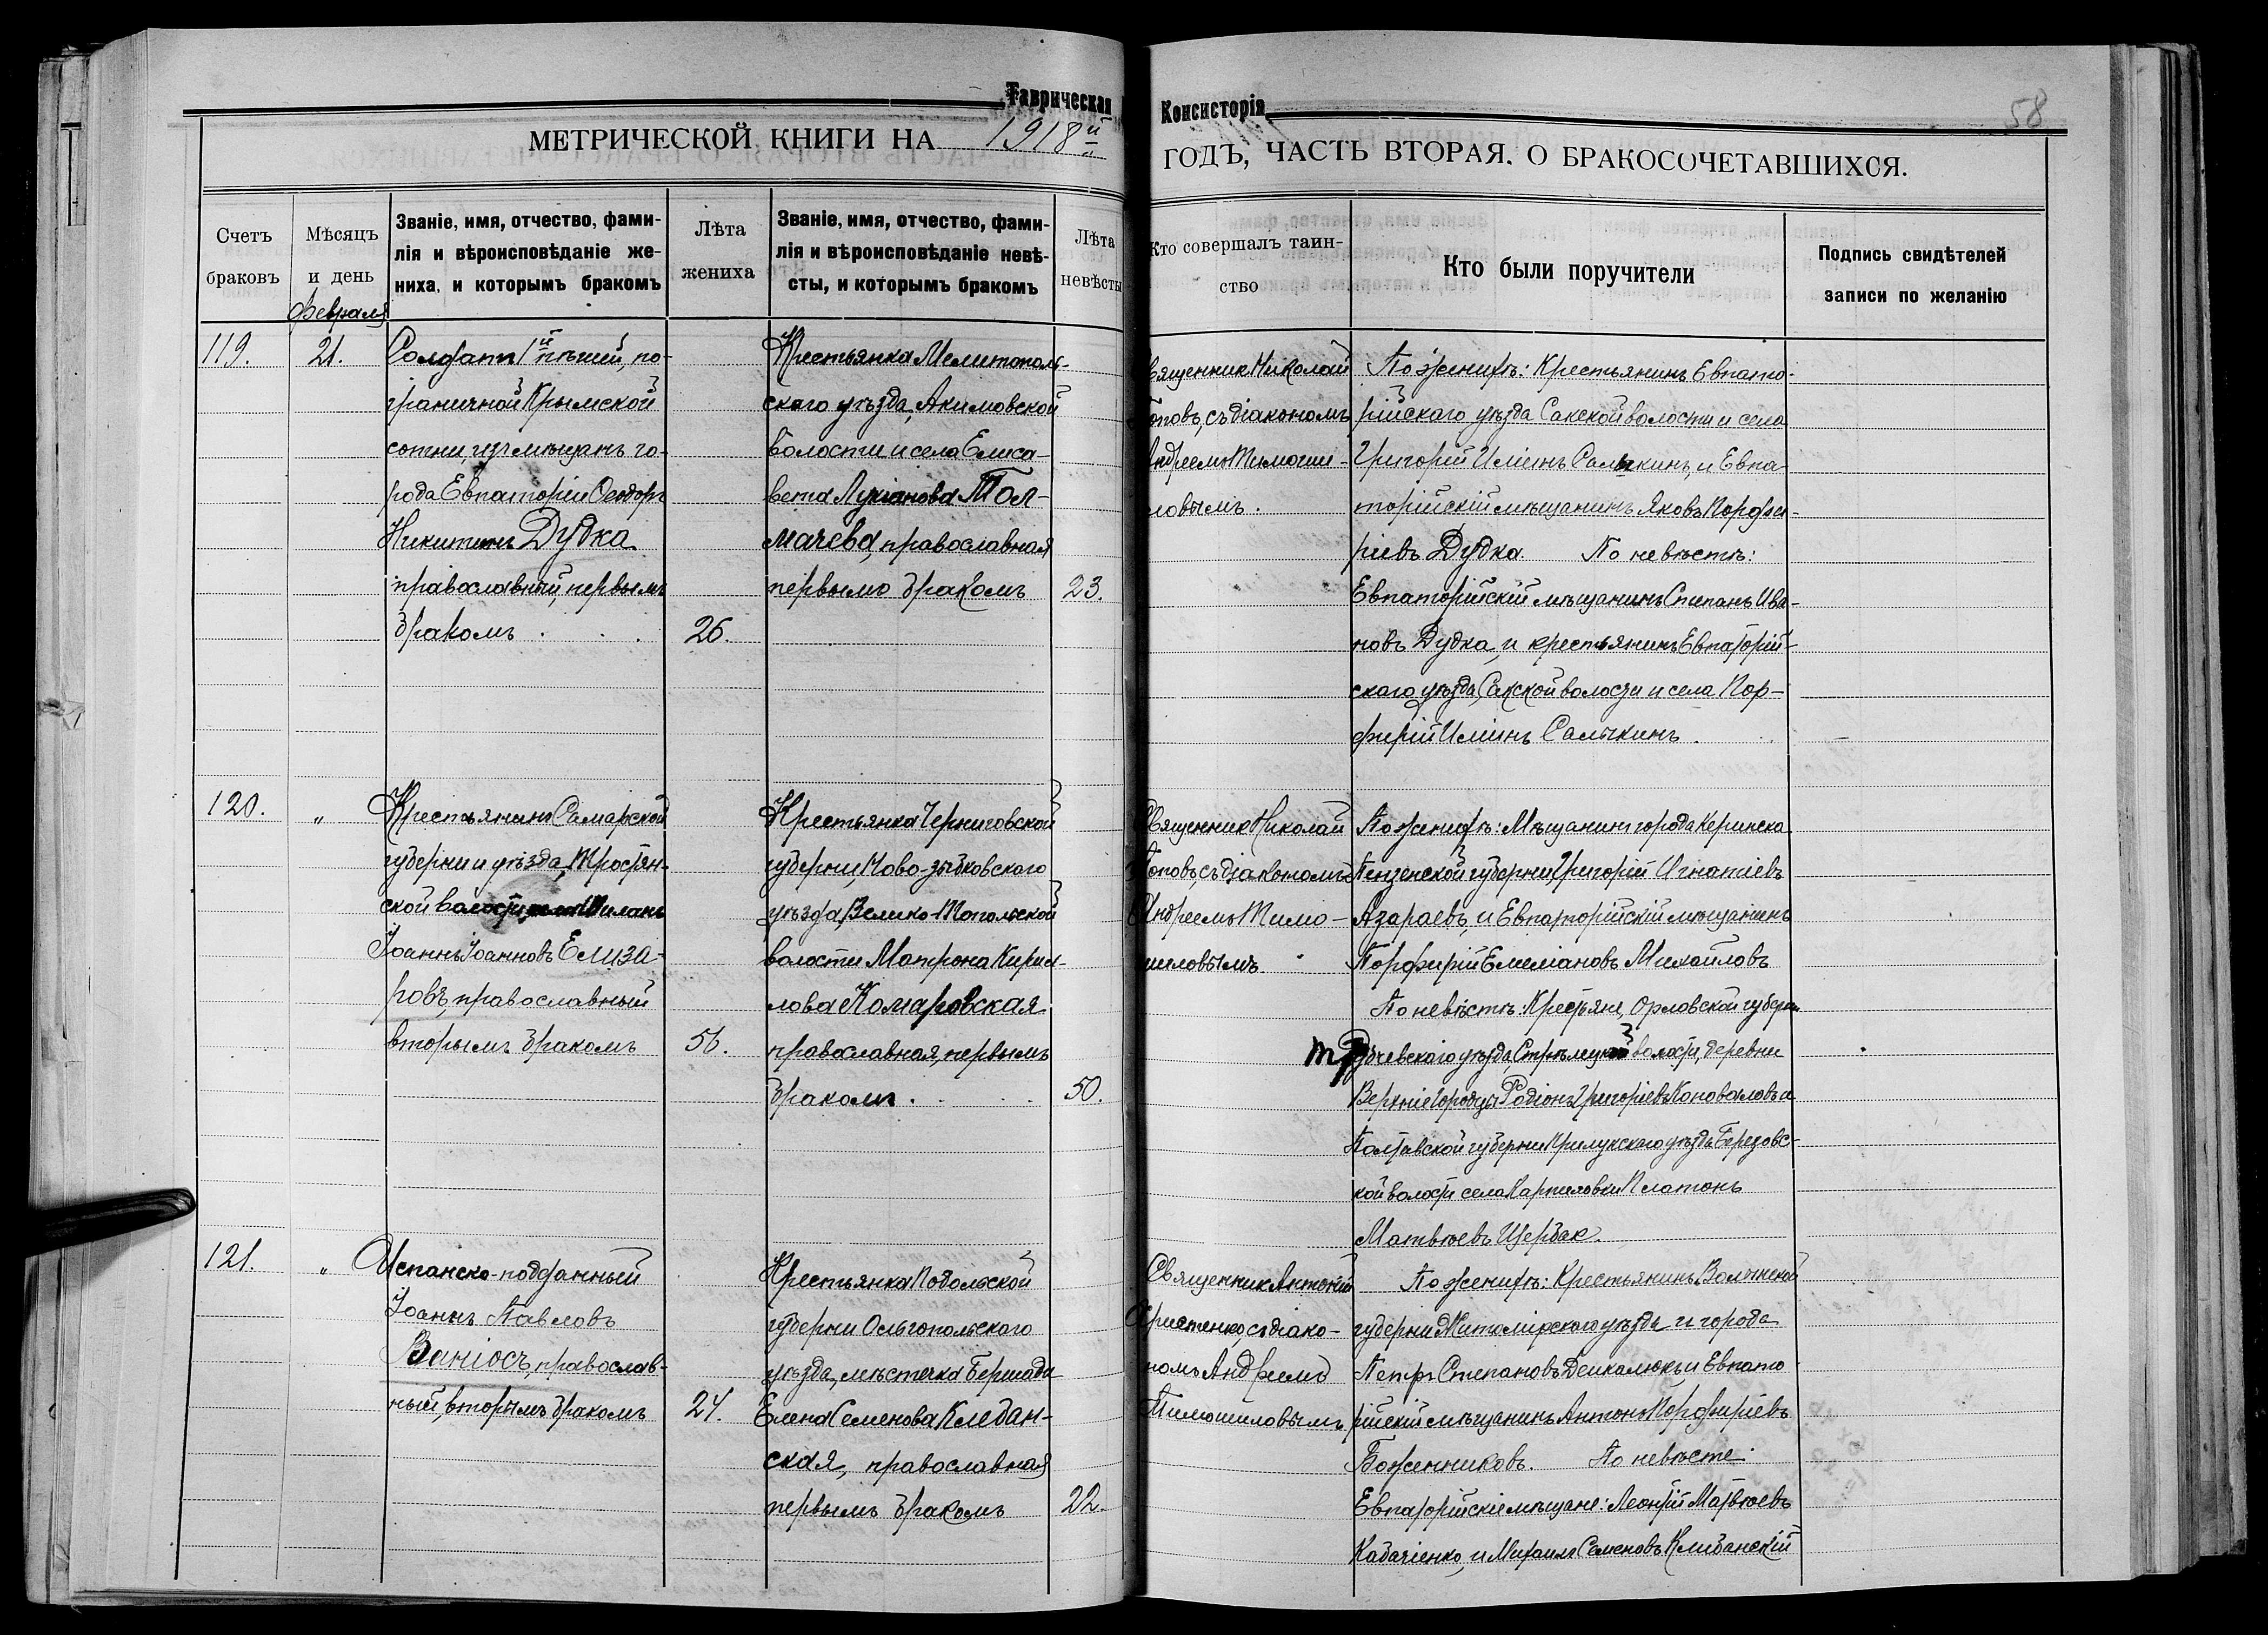 Таврическая
Консисторія
58
МЕТРИЧЕСКОЙ КНИГИ НА 1918й
ГОДЪ, ЧАСТЬ ВТОРАЯ. О БРАКОСОЧЕТАВШИХСЯ.
Счетъ
браковъ
Мѣсяцъ
и день
Званіе, имя, отчество, фами-
лія и вѣроисповѣданіе же-
ниха, и которымъ бракомъ
Лѣта
жениха
Званіе, имя, отчество, фами-
лія и вѣроисповѣданіе невѣ-
сты, и которымъ бракомъ
Лѣта
невѣсты
Кто совершалъ таин-
ство
Кто были поручители
Подпись свидѣтелей
записи по желанію
Февраля
119.
21.
Солдатъ 1й пѣшей, по-
граничной Крымской
сотни, изъ мѣщанъ го-
рода Евпаторіи Ѳеодоръ
Никитинъ Дудка
православный, первымъ
бракомъ
26.
Крестьянка Мелитополь-
скаго уѣзда, Акимовской
волости, и села Елиса-
вета Лукіанова Тол-
мачева, православная
первымъ бракомъ
23.
Священникъ Николай
Поповъ, съ діакономъ
Андреемъ Тимоши-
ловымъ.
По женихѣ: Крестьянинъ Евпато-
рійскаго уѣзда Сакской волости и села
Григорій Ильинъ Салыкинъ, и Евпа-
торійскій мѣщанинъ Яковъ Порфи-
ріевъ Дудка. По невѣстѣ:
Евпаторійскій мѣщанинъ Степанъ Ива-
новъ Дудка, и крестьянинъ Евпаторій-
скаго уѣзда, Сакской волости и села Пор-
фирій Ильинъ Салыкинъ.
120.
"
Крестьянинъ Самарской
губерніи и уѣзда, Тростян-
ской волости,
Іоаннъ Іоанновъ Елиза-
ровъ, православный
вторымъ бракомъ
56.
Крестьянка Черниговской
губерніи, Ново-зыбковскаго
уѣзда, Велико-Топольской
волости Матрона Кирил-
лова Комаровская
православная, первымъ
бракомъ.
50.
Священникъ Николай
Поповъ, съ діакономъ
Андреемъ Тимо-
шиловымъ.
По женихѣ: Мѣщанинъ города Керинска
Пензенской губерніи, Григорій Игнатіевъ
Азараевъ, и Евпаторійскій мѣщанинъ
Порфирій Емеліановъ Михайловъ
По невѣстѣ: Крестьяне, Орловской губерн.
Трубчевскаго уѣзда, Стрѣлецкой волости, деревни
Верхніе Городцы Родіонъ Григоріевъ Коноваловъ и
Полтавской губерніи Прилукскаго уѣзда Березовс-
кой волости села Карпиловки Платонъ
Матвѣевъ Щербак.
121.
"
Испанско-подданный
Іоаннъ Павловъ
Ваніосъ, православ-
ный, вторымъ бракомъ
24.
Крестьянка Подольской
губерніи Ольгопольскаго
уѣзда, мѣстечка Бершада
Елена Семенова Клебан-
ская, православная
первымъ бракомъ
22.
Священник Антоній
Христенко, съ діако-
номъ Андреемъ
Тимошиловымъ.
По женихѣ: Крестьянинъ Волынской
губерніи Житомірскаго уѣзда и города
Петръ Степановъ Дейкалюкъ и Евпато-
рійскій мѣщанинъ Антонъ Порфиріевъ
Боженниковъ. По невѣсте:
Евпаторійскіе мѣщане: Леонтій Матвѣевъ
Кабаченко, и Михаилъ Семеновъ Клибанскій